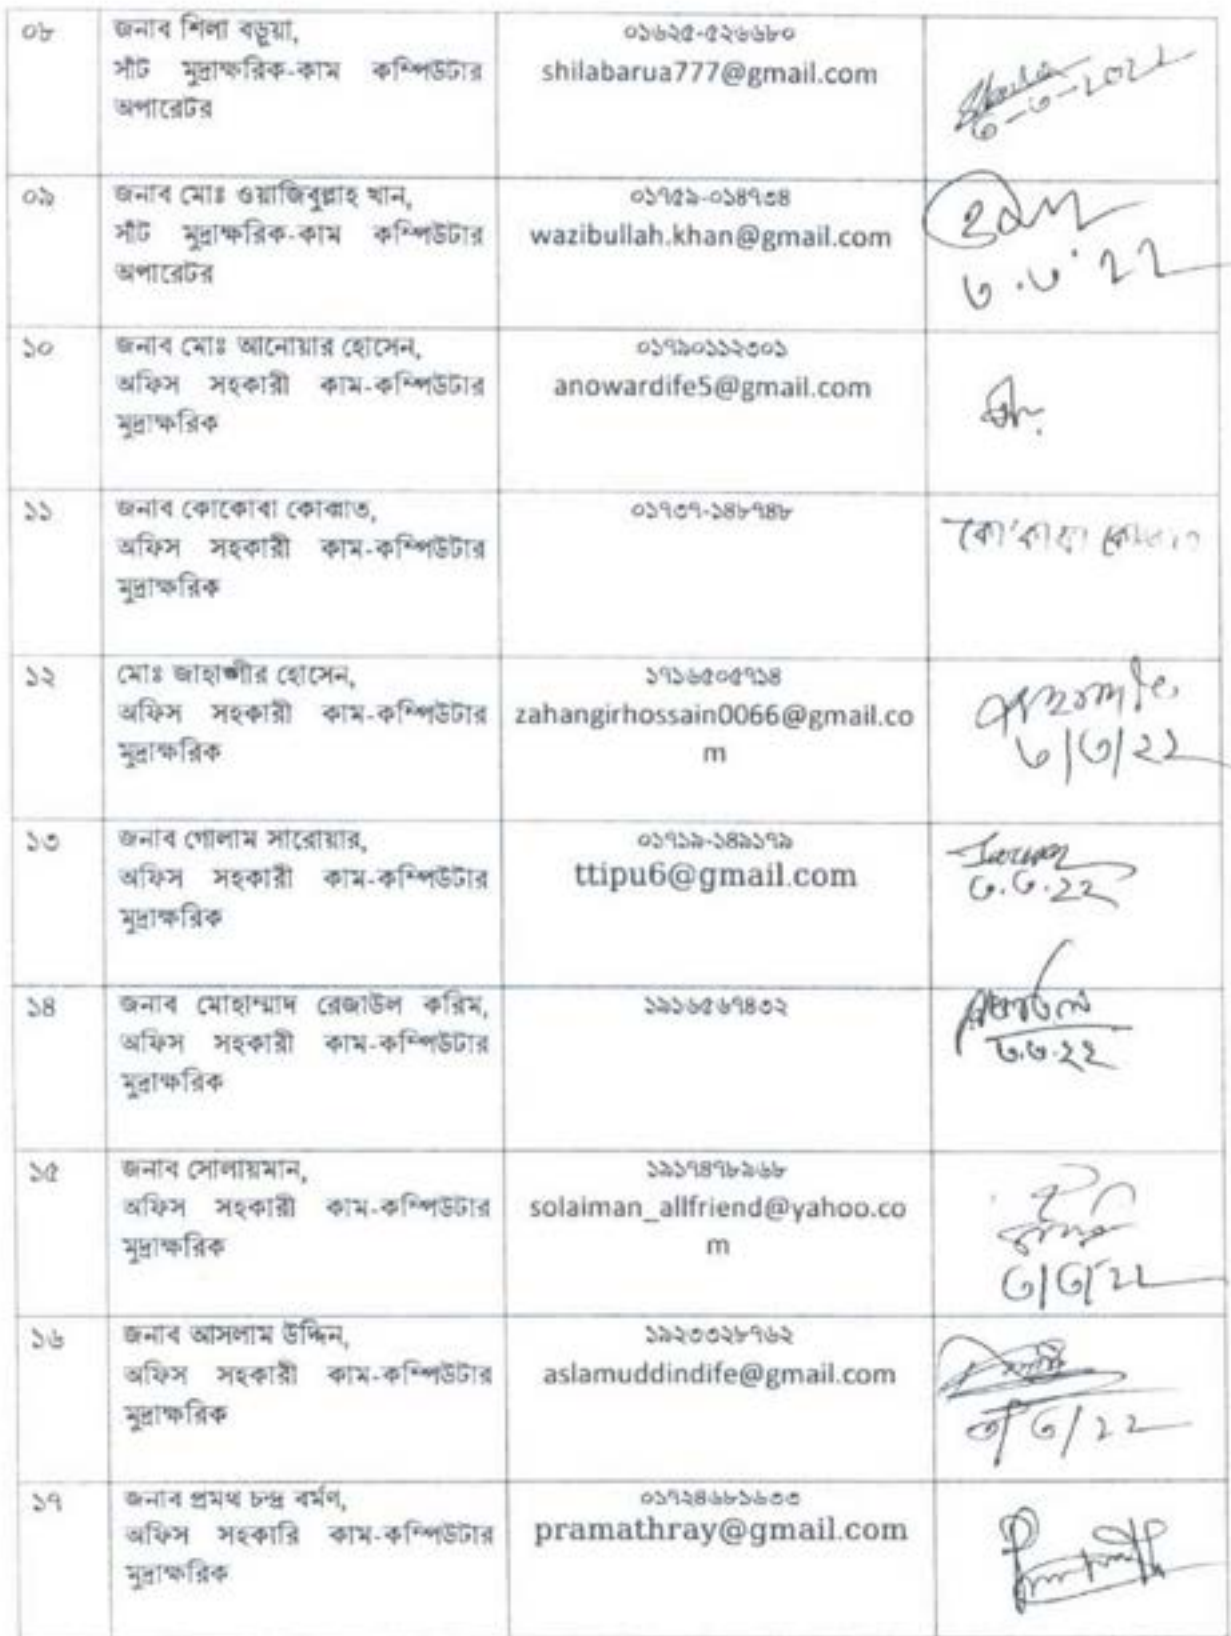 ০৮
জনাব শিলা বড়ুয়া,
সাঁট মুদ্রাক্ষরিক-কাম কম্পিউটার
অপারেটর
০১৬২৫-৫২৬৬৮০
shilabarua777@gmail.com
৩-৩-২০২২
০৯
জনাব মোঃ ওয়াজিবুল্লাহ খান,
সাঁট মুদ্রাক্ষরিক-কাম কম্পিউটার
অপারেটর
০১৭৫৯-০১৪৭৩৪
wazibullah.khan@gmail.com
৩.৩.২২
১০
জনাব মোঃ আনোয়ার হোসেন,
অফিস সহকারী কাম-কম্পিউটার
মুদ্রাক্ষরিক
০১৭৯০১১২৩০১
anowardife5@gmail.com
১১
জনাব কোকোবা কোব্বাত,
অফিস সহকারী কাম-কম্পিউটার
মুদ্রাক্ষরিক
০১৭৩৭-১৪৮৭৪৮
১২
মোঃ জাহাঙ্গীর হোসেন,
অফিস সহকারী কাম-কম্পিউটার
মুদ্রাক্ষরিক
১৭১৬৫০৫৭১৪
zahangirhossain0066@gmail.co
m
৩/৩/২২
১৩
জনাব গোলাম সারোয়ার,
অফিস সহকারী কাম-কম্পিউটার
মুদ্রাক্ষরিক
০১৭১৯-১৪৯১৭৯
ttipu6@gmail.com
৩.৩.২২
১৪
জনাব মোহাম্মাদ রেজাউল করিম,
অফিস সহকারী কাম-কম্পিউটার
মুদ্রাক্ষরিক
১৯১৬৫৬৭৪৩২
৩.৩.২২
১৫
জনাব সোলায়মান,
অফিস সহকারী কাম-কম্পিউটার
মুদ্রাক্ষরিক
১৯১৭৪৭৮৯৬৮
solaiman_allfriend@yahoo.co
m
৩/৩/২২
১৬
জনাব আসলাম উদ্দিন,
অফিস সহকারী কাম-কম্পিউটার
মুদ্রাক্ষরিক
১৯২৩৩২৮৭৬২
aslamuddindife@gmail.com
৩/৩/২২
১৭
জনাব প্রমথ চন্দ্র বর্মণ,
অফিস সহকারি কাম-কম্পিউটার
মুদ্রাক্ষরিক
০১৭২৪৬৮১৬৩৩
pramathray@gmail.com